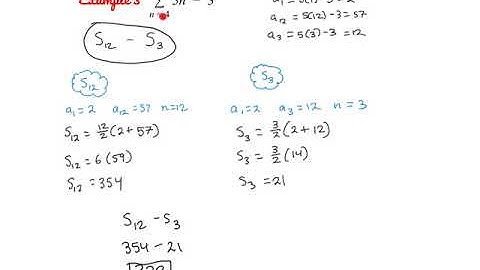 Example 3 ∑ 5n - 3
a₁₂ = 5(12) - 3 = 57
a₃ = 5(3) - 3 = 12
S₁₂ - S₃
S₁₂
a₁ = 2 a₁₂ = 57 n = 12
S₁₂ = 12/2 (2 + 57)
S₁₂ = 6 (59)
S₁₂ = 354
S₃
a₁ = 2 a₃ = 12 n = 3
S₃ = 3/2 (2 + 12)
S₃ = 3/2 (14)
S₃ = 21
S₁₂ - S₃
354 - 21